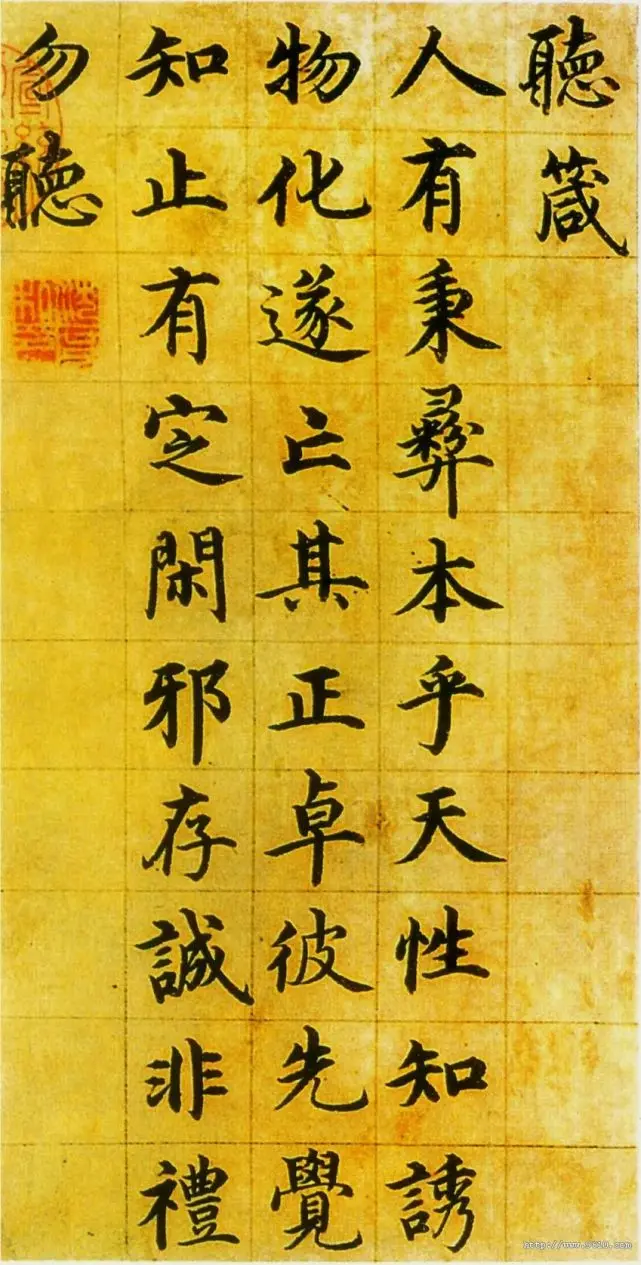 聽箴
人有秉彞本乎天性知誘
物化遂亡其正卓彼先覺
知止有定閑邪存誠非禮
勿聽
http://www.9610.com